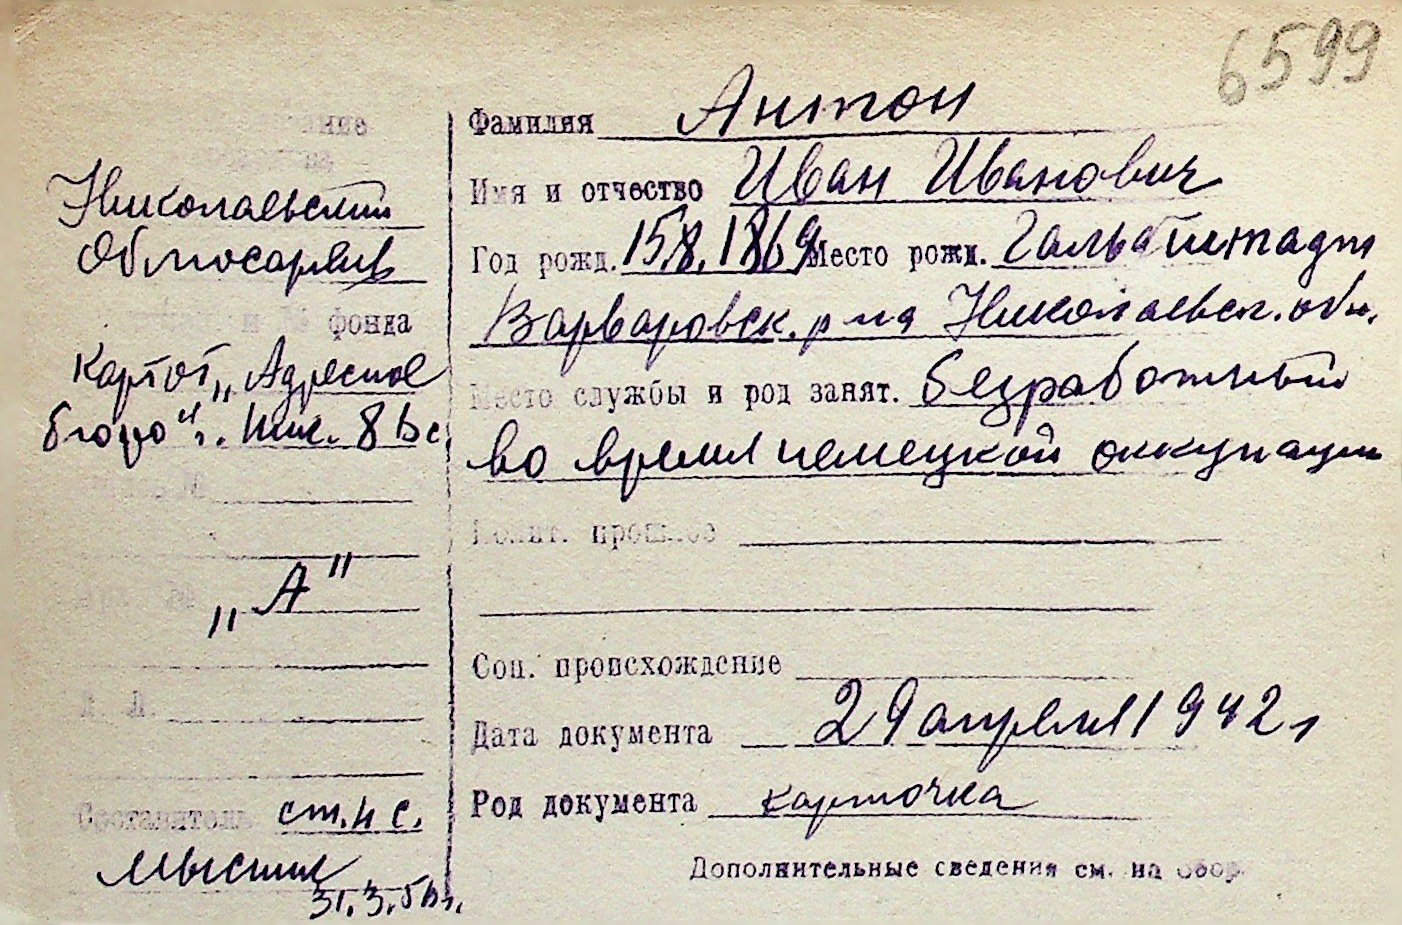 6599
Николаевский
Облгосархив
фонда
Картот. „Адресное
бюро" г. Ник.
„А"
Составитель ст. н с.
31.3.5
Фамилия Антон
Имя и отчество Иван Иванович
Год рожд. 15.8.1869 Место рожд. Гальбштадт
Варваровск. р-на Николаевск. обл.
Место службы и род занят. безработный
во время немецкой оккупации
Полит. прошлое
Соц. происхождение
Дата документа 29 апреля 1942 г
Род документа карточка
Дополнительные сведения см. на обор.